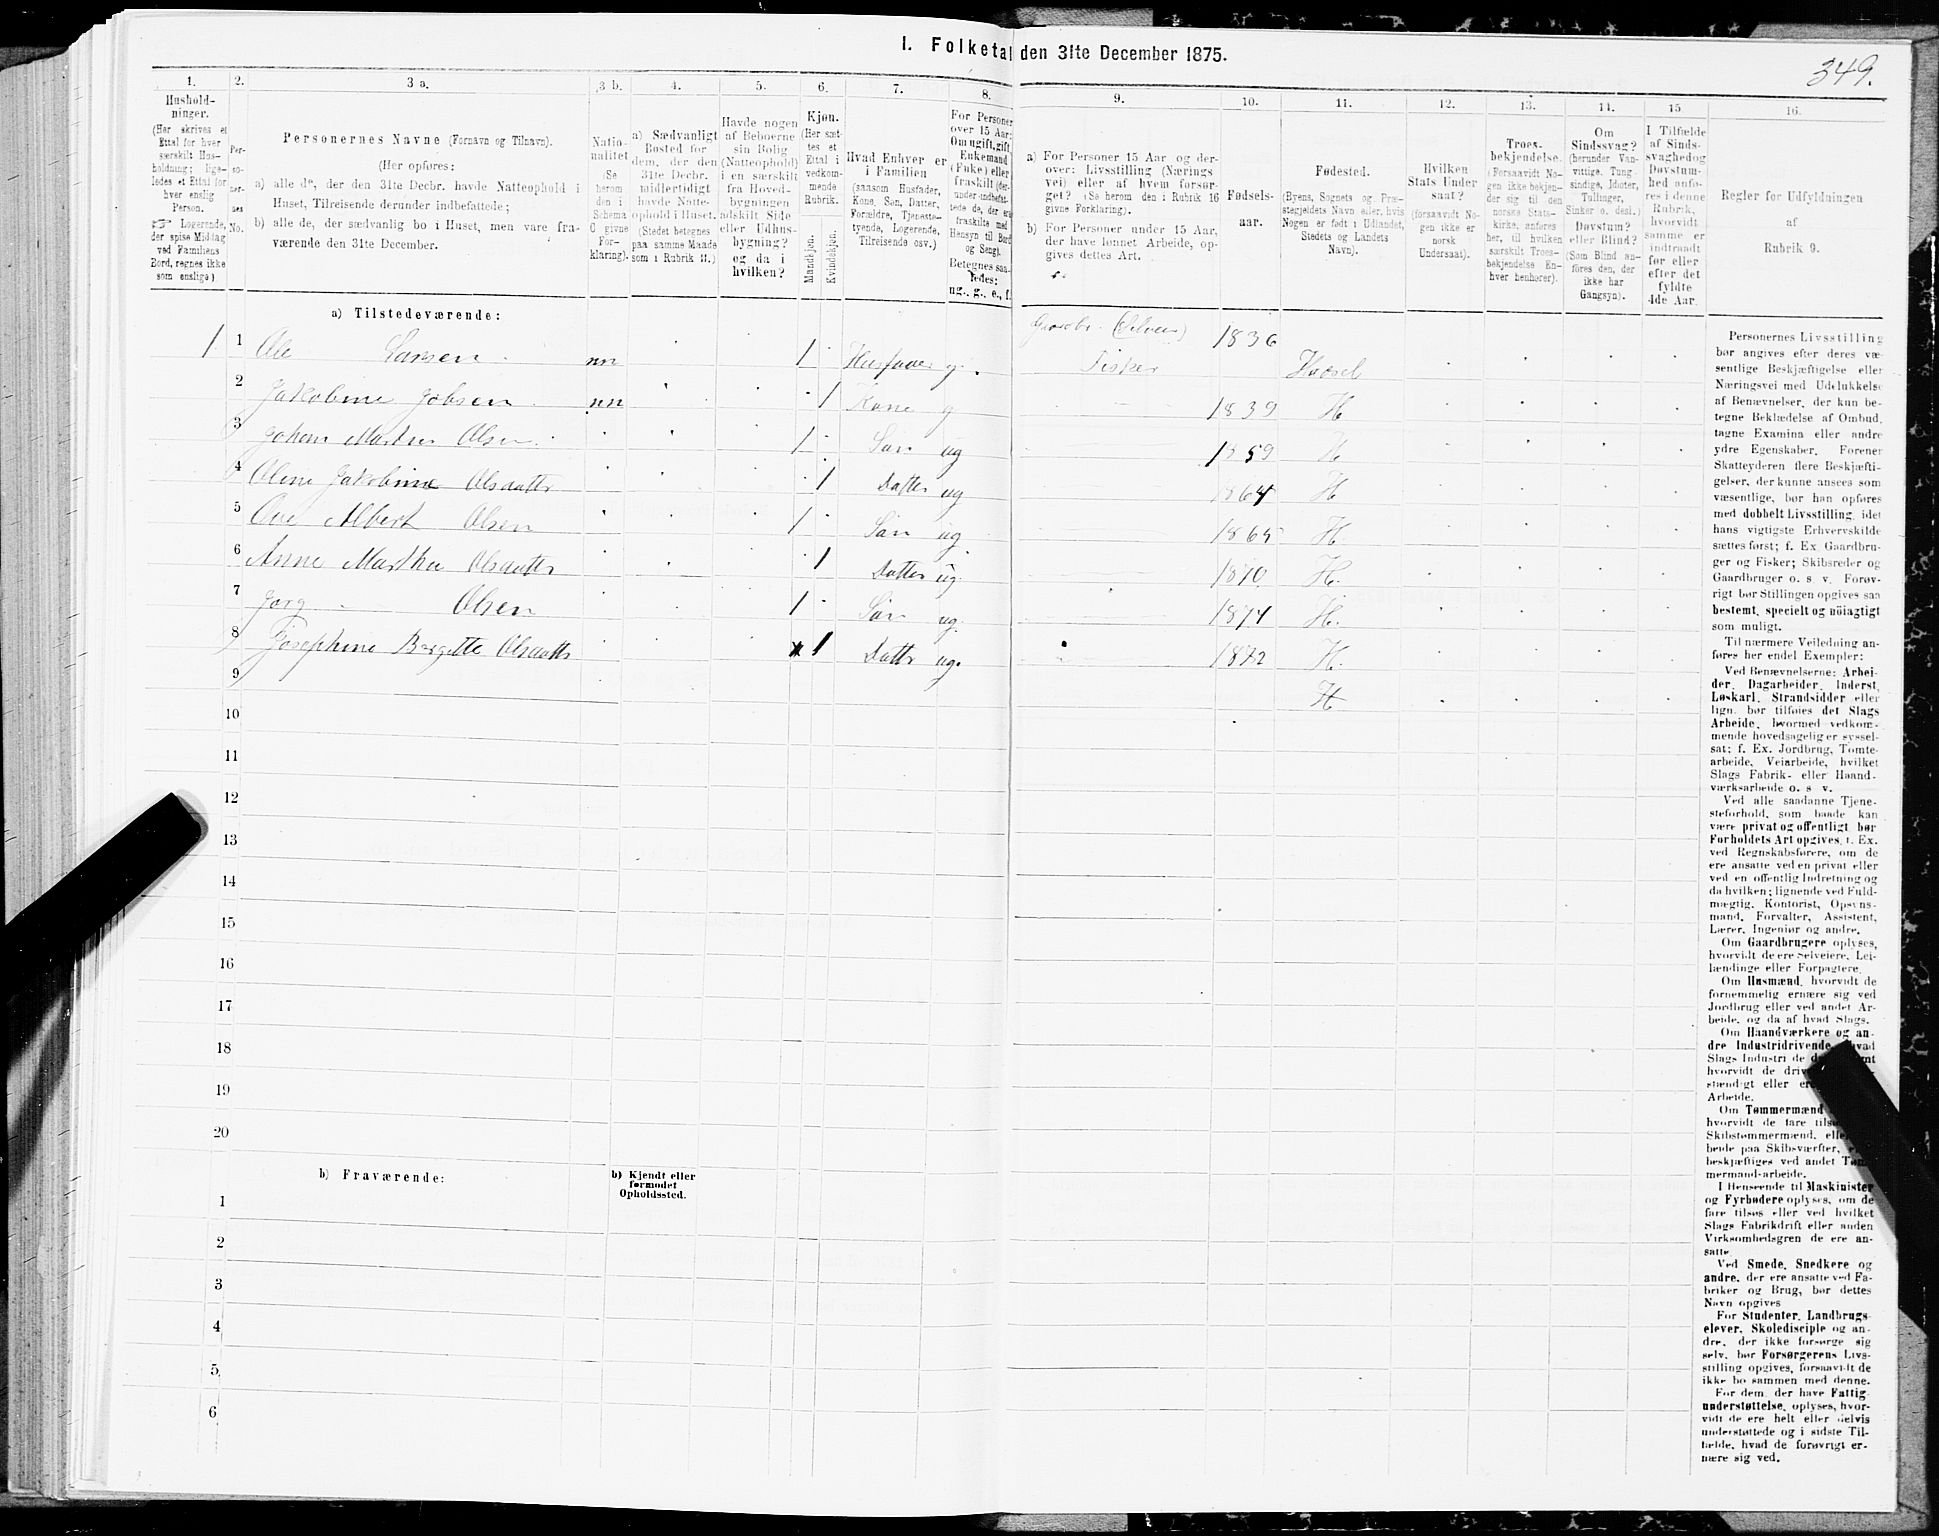 I. Folketal den 31te December 1875.
349.
1.
Hushold-
ninger.
(Her skrives et
Ettal for hver
særskilt Hus-
holdning; lige-
ledes et Ettal for
hver enslig
Person.
☞ Logerende,
der spise Middag
ved Familiens
Bord, regnes ikke
som enslige).
2.
Per-
so-
ner-
nes
No.
3 a.
Personernes Navne (Fornavn og Tilnavn).
(Her opføres:
a) alle de, der den 31te Decbr. havde Natteophold i
Huset, Tilreisende derunder indbefattede;
b) alle de, der sædvanlig bo i Huset, men vare fra-
værende den 31te December.
3 b.
Natio-
nalitet
(Se
herom
den i
Schema
C givne
For-
klaring).
4.
a) Sædvanligt
Bosted for
dem, der den
31te Decbr.
midlertidigt
havde Natte-
ophold i Huset.
(Stedet betegnes
paa samme Maade
som i Rubrik 11.)
5.
Havde nogen
af Beboerne
sin Bolig
(Natteophold)
i en særskilt
fra Hoved-
bygningen
adskilt Side
eller Udhus-
bygning?
og da i
hvilken?
6.
Kjøn.
(Her sæt-
tes et
Ettal i
vedkom-
mende
Rubrik.
Mandkjøn.
Kvindekjøn.
7.
Hvad Enhver er
i Familien
(saasom Husfader,
Kone, Søn, Datter,
Forældre, Tjeneste-
tyende, Logerende,
Tilreisende osv.)
8.
For Personer
over 15 Aar:
Om ugift, gift,
Enkemand
(Enke) eller
fraskilt (der-
under indbefat-
tede de, der ere
fraskilte med
Hensyn til Bord
og Seng).
Betegnes saa-
ledes:
ug., g., e., f.
9.
a) For Personer 15 Aar og der-
over: Livsstilling (Nærings-
vei) eller af hvem forsør-
get? (Se herom den i Rubrik 16
givne Forklaring).
b) For Personer under 15 Aar,
der have lønnet Arbeide, op-
gives dettes Art.
10.
Fødsels-
aar.
11.
Fødested.
(Byens, Sognets og Præ-
stegjeldets Navn eller, hvis
Nogen er født i Udlandet,
Stedets og Landets
Navn).
12.
Hvilken
Stats Under
saat?
(forsaavidt No-
gen ikke er
norsk
Undersaat).
13.
Troes-
bekjendelse.
(Forsaavidt No-
gen ikke bekjen-
der sig til den
norske Stats-
kirke, anføres
her, til hvilken
særskilt Troes-
bekjendelse En-
hver henhører).
14.
Om
Sindssvag?
(herunder Van-
vittige, Tung-
sindige, Idioter,
Tullinger,
Sinker o. desl.)
Døvstum?
eller Blind?
(Som Blind an-
føres den, der
ikke har
Gangsyn).
15.
I Tilfælde
af Sinds-
svaghed og
Døvstum-
hed anfø-
res i denne
Rubrik,
hvorvidt
samme er
indtraadt
før eller
efter det
fyldte
4de Aar.
16.
Regler for Udfyldningen
af
Rubrik 9.
a) Tilstedeværende:
Gaardbr. (Selveier)
1 1 Ole Larsen nn 1 Husfader g. Fisker 1836 Hadsel
2 Jakobine Jobsen nn 1 Kone g 1839 H
3 Johan Martin Olsen 1 Søn ug 1859 H
4 Oline Jakobine Olsdattr 1 Datter ug 1864 H
5 Ove Albert Olsen 1 Søn ug. 1865 H.
6 Anne Martha Olsdattr 1 Datter ug. 1870 H.
7 Jorg Olsen 1 Søn ug. 1874 H.
8 Josephine Bergette Olsdattr 1 Dattr ug. 1872 H.
9 H
10
11
12
13
14
15
16
17
18
19
20
b) Fraværende:
b) Kjendt eller
formodet
Opholdssted.
1
2
3
4
5
6
Personernes Livsstilling
bør angives efter deres væ-
sentlige Beskjæftigelse eller
Næringsvei med Udelukkelse
af Benævnelser, der kun be-
tegne Beklædelse af Ombud,
tagne Examina eller andre
ydre Egenskaber. Forener
Skatteyderen flere Beskjæfti-
gelser, der kunne ansees som
væsentlige, bør han opføres
med dobbelt Livsstilling, idet
hans vigtigste Erhvervskilde
sættes først; f. Ex. Gaardbru-
ger og Fisker; Skibsreder og
Gaardbruger o. s. v. Forøv-
rigt bør Stillingen opgives saa
bestemt, specielt og nöiagtigt
som muligt.
Til nærmere Veiledning an-
føres her endel Exempler:
Ved Benævnelserne: Arbei-
der, Dagarbeider, Inderst,
Løskarl, Strandsidder eller
lign. bør tilføies det Slags
Arbeide, hvormed vedkom-
mende hovedsagelig er syssel-
sat; f. Ex. Jordbrug, Tomte-
arbeide, Veiarbeide, hvilket
Slags Fabrik- eller Haand-
værksarbeide o. s v.
Ved alle saadanne Tjene-
steforhold, som baade kan
være privat og offentligt, bør
Forholdets Art opgives, f. Ex.
ved Regnskabsførere, om de
ere ansatte ved en privat eller
ved en offentlig Indretning og
da hvilken; lignende ved Fuld-
mægtig, Kontorist, Opsyns-
mand, Forvalter, Assistent,
Lærer, Ingeniør og andre.
Om Gaardbrugere oplyses,
hvorvidt de ere Selveiere, Lei-
lændinge eller Forpagtere.
Om Husmænd, hvorvidt de
fornemmelig ernære sig ved
Jordbrug eller ved andet Ar-
beide, og da af hvad Slags.
Om Haandværkere og an-
dre Industridrivende, hvad
Slags Industri de
hvorvidt de
stændigt eller
Arbeide.
Om Tømmermænd
hvorvidt de fare
Skibstømmermænd,
beide paa Skibsværfter,
beskjæftiges ved andet Tøm-
mermand-arbeide.
I Henseende til Maskinister
og Fyrbødere oplyses, om de
fare tilsøs eller ved hvilket
Slags Fabrikdrift eller anden
Virksomhedsgren de ere an-
satte.
Ved Smede, Snedkere og
andre, der ere ansatte ved Fa-
briker og Brug, bør dettes
Navn opgives
For Studenter, Landbrugs-
elever, Skoledisciple og an-
dre, der ikke forsørge sig
selv, bør Forsørgerens Livs-
stilling opgives, forsaavidt de
ikke bo sammen med denne.
For dem, der have Fattig-
understøttelse, oplyses, hvor-
vidt de ere helt eller delvis
understøttede og i sidste Til-
fælde, hvad de forøvrigt er-
nære sig ved.